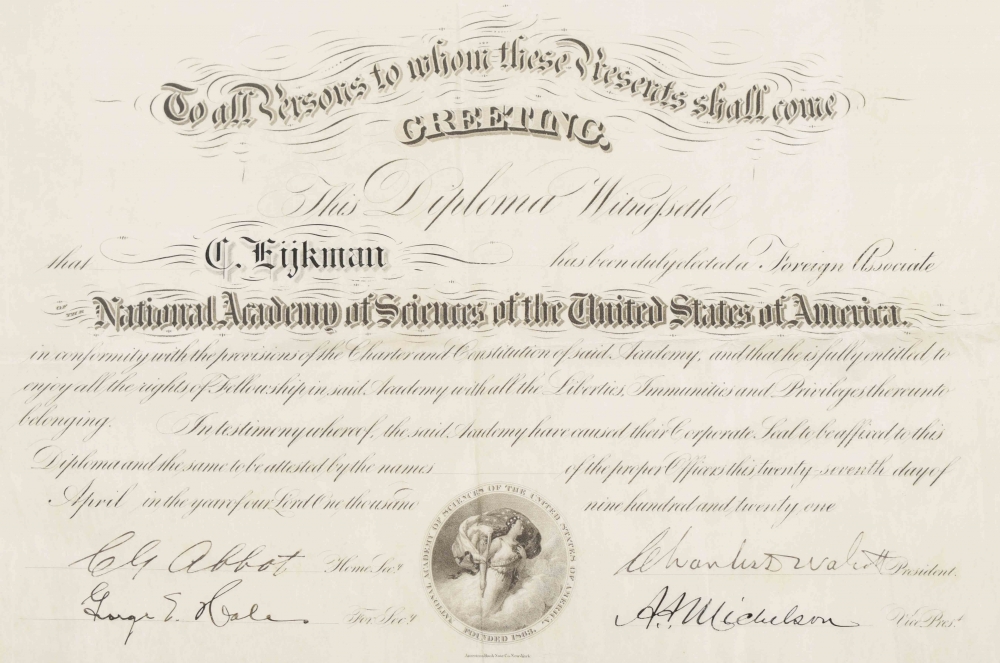 To all Persons to whom these Presents shall come
GREETING.
This Diploma Witnesseth
that C. Eijkman has been duly elected a Foreign Associate
OF THE National Academy of Sciences of the United States of America.
in conformity with the provisions of the Charter and Constitution of said Academy, and that he is fully entitled to
enjoy all the rights of Fellowship in said Academy with all the Liberties, Immunities and Privileges thereunto
belonging. In testimony whereof, the said Academy have caused their Corporate Seal to be affixed to this
Diploma and the same to be attested by the names of the proper Officers this twenty-seventh day of
April in the year of our Lord One thousand nine hundred and twenty one
NATIONAL ACADEMY OF SCIENCES OF THE UNITED STATES OF AMERICA.
FOUNDED 1863.
C G Abbot Home Sec.y Charles D Walcott President.
George E. Hale For. Sec.y A. A. Michelson Vice Pres.t